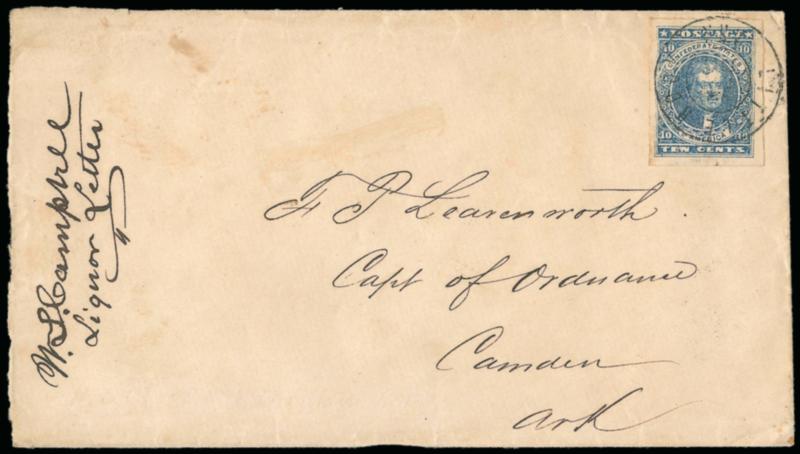 POSTAGE
10 10
CONFEDERATE STATES
10 10
TEN CENTS
F P Leavenworth
Capt of Ordnance
Camden
Ark
W. S. Campbell
Liquor Letter